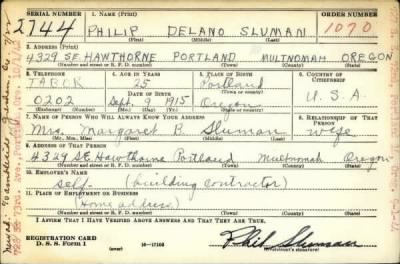 SERIAL NUMBER 1. NAME (Print) ORDER NUMBER
2744 PHILIP DELANO SLUMAN 1070
(First) (Middle) (Last)
2. ADDRESS (Print)
4329 SE HAWTHORNE PORTLAND MULTNOMAH OREGON
(Number and street or R. F. D. number) (Town) (County) (State)
3. TELEPHONE 4. AGE IN YEARS 5. PLACE OF BIRTH 6. COUNTRY OF CITIZENSHIP
TABOR 25 Portland
DATE OF BIRTH (Town or county)
0202 Sept. 9 1915 Oregon U.S.A.
(Exchange) (Number) (Mo.) (Day) (Yr.) (State or country)
7. NAME OF PERSON WHO WILL ALWAYS KNOW YOUR ADDRESS 8. RELATIONSHIP OF THAT PERSON
Mrs. Margaret B. Sluman wife
(Mr., Mrs., Miss) (First) (Middle) (Last)
9. ADDRESS OF THAT PERSON
4329 SE Hawthorne Portland Multnomah Oregon
(Number and street or R. F. D. number) (Town) (County) (State)
10. EMPLOYER'S NAME
self- (building contractor)
11. PLACE OF EMPLOYMENT OR BUSINESS
(Home address)
(Number and street or R. F. D. number) (Town) (County) (State)
I AFFIRM THAT I HAVE VERIFIED ABOVE ANSWERS AND THAT THEY ARE TRUE.
REGISTRATION CARD
D. S. S. Form 1 16—17105 Phil Sluman
(Registrant's signature)